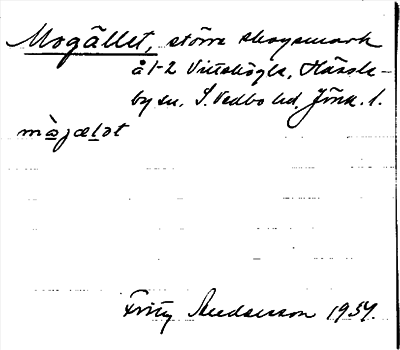 Mogället, större skogsmark
å 1-2 Vittskögle, Hässle-
by sn. S. Vedbo hd. Jönk. l.
mòjælət
Fritz Andersson 1954.